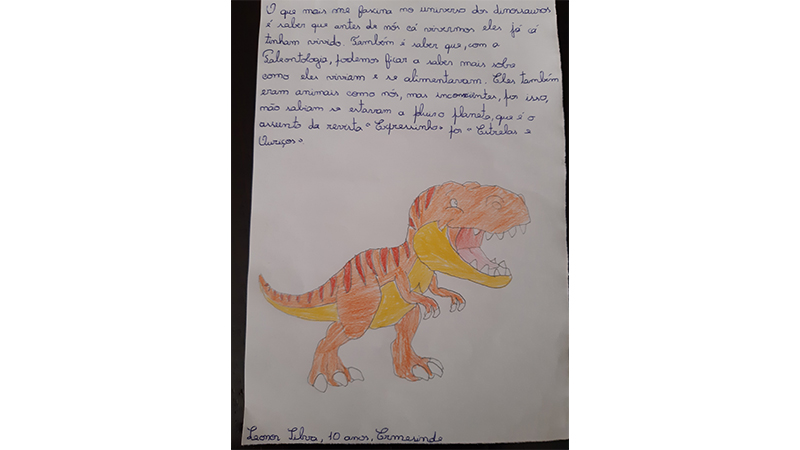 O que mais me fascina no universo dos dinossauros
é saber que antes de nós cá vivermos eles já cá
tinham vivido. Também é saber que, com a
Paleontologia, podemos ficar a saber mais sobre
como eles viviam e se alimentavam. Eles também
eram animais como nós, mas inconscientes, por isso,
não sabiam se estavam a poluir o planeta, que é o
assunto da revista "Expressinho" por "Estrelas e
Ouriços"
Leonor Silva, 10 anos, Ermesinde